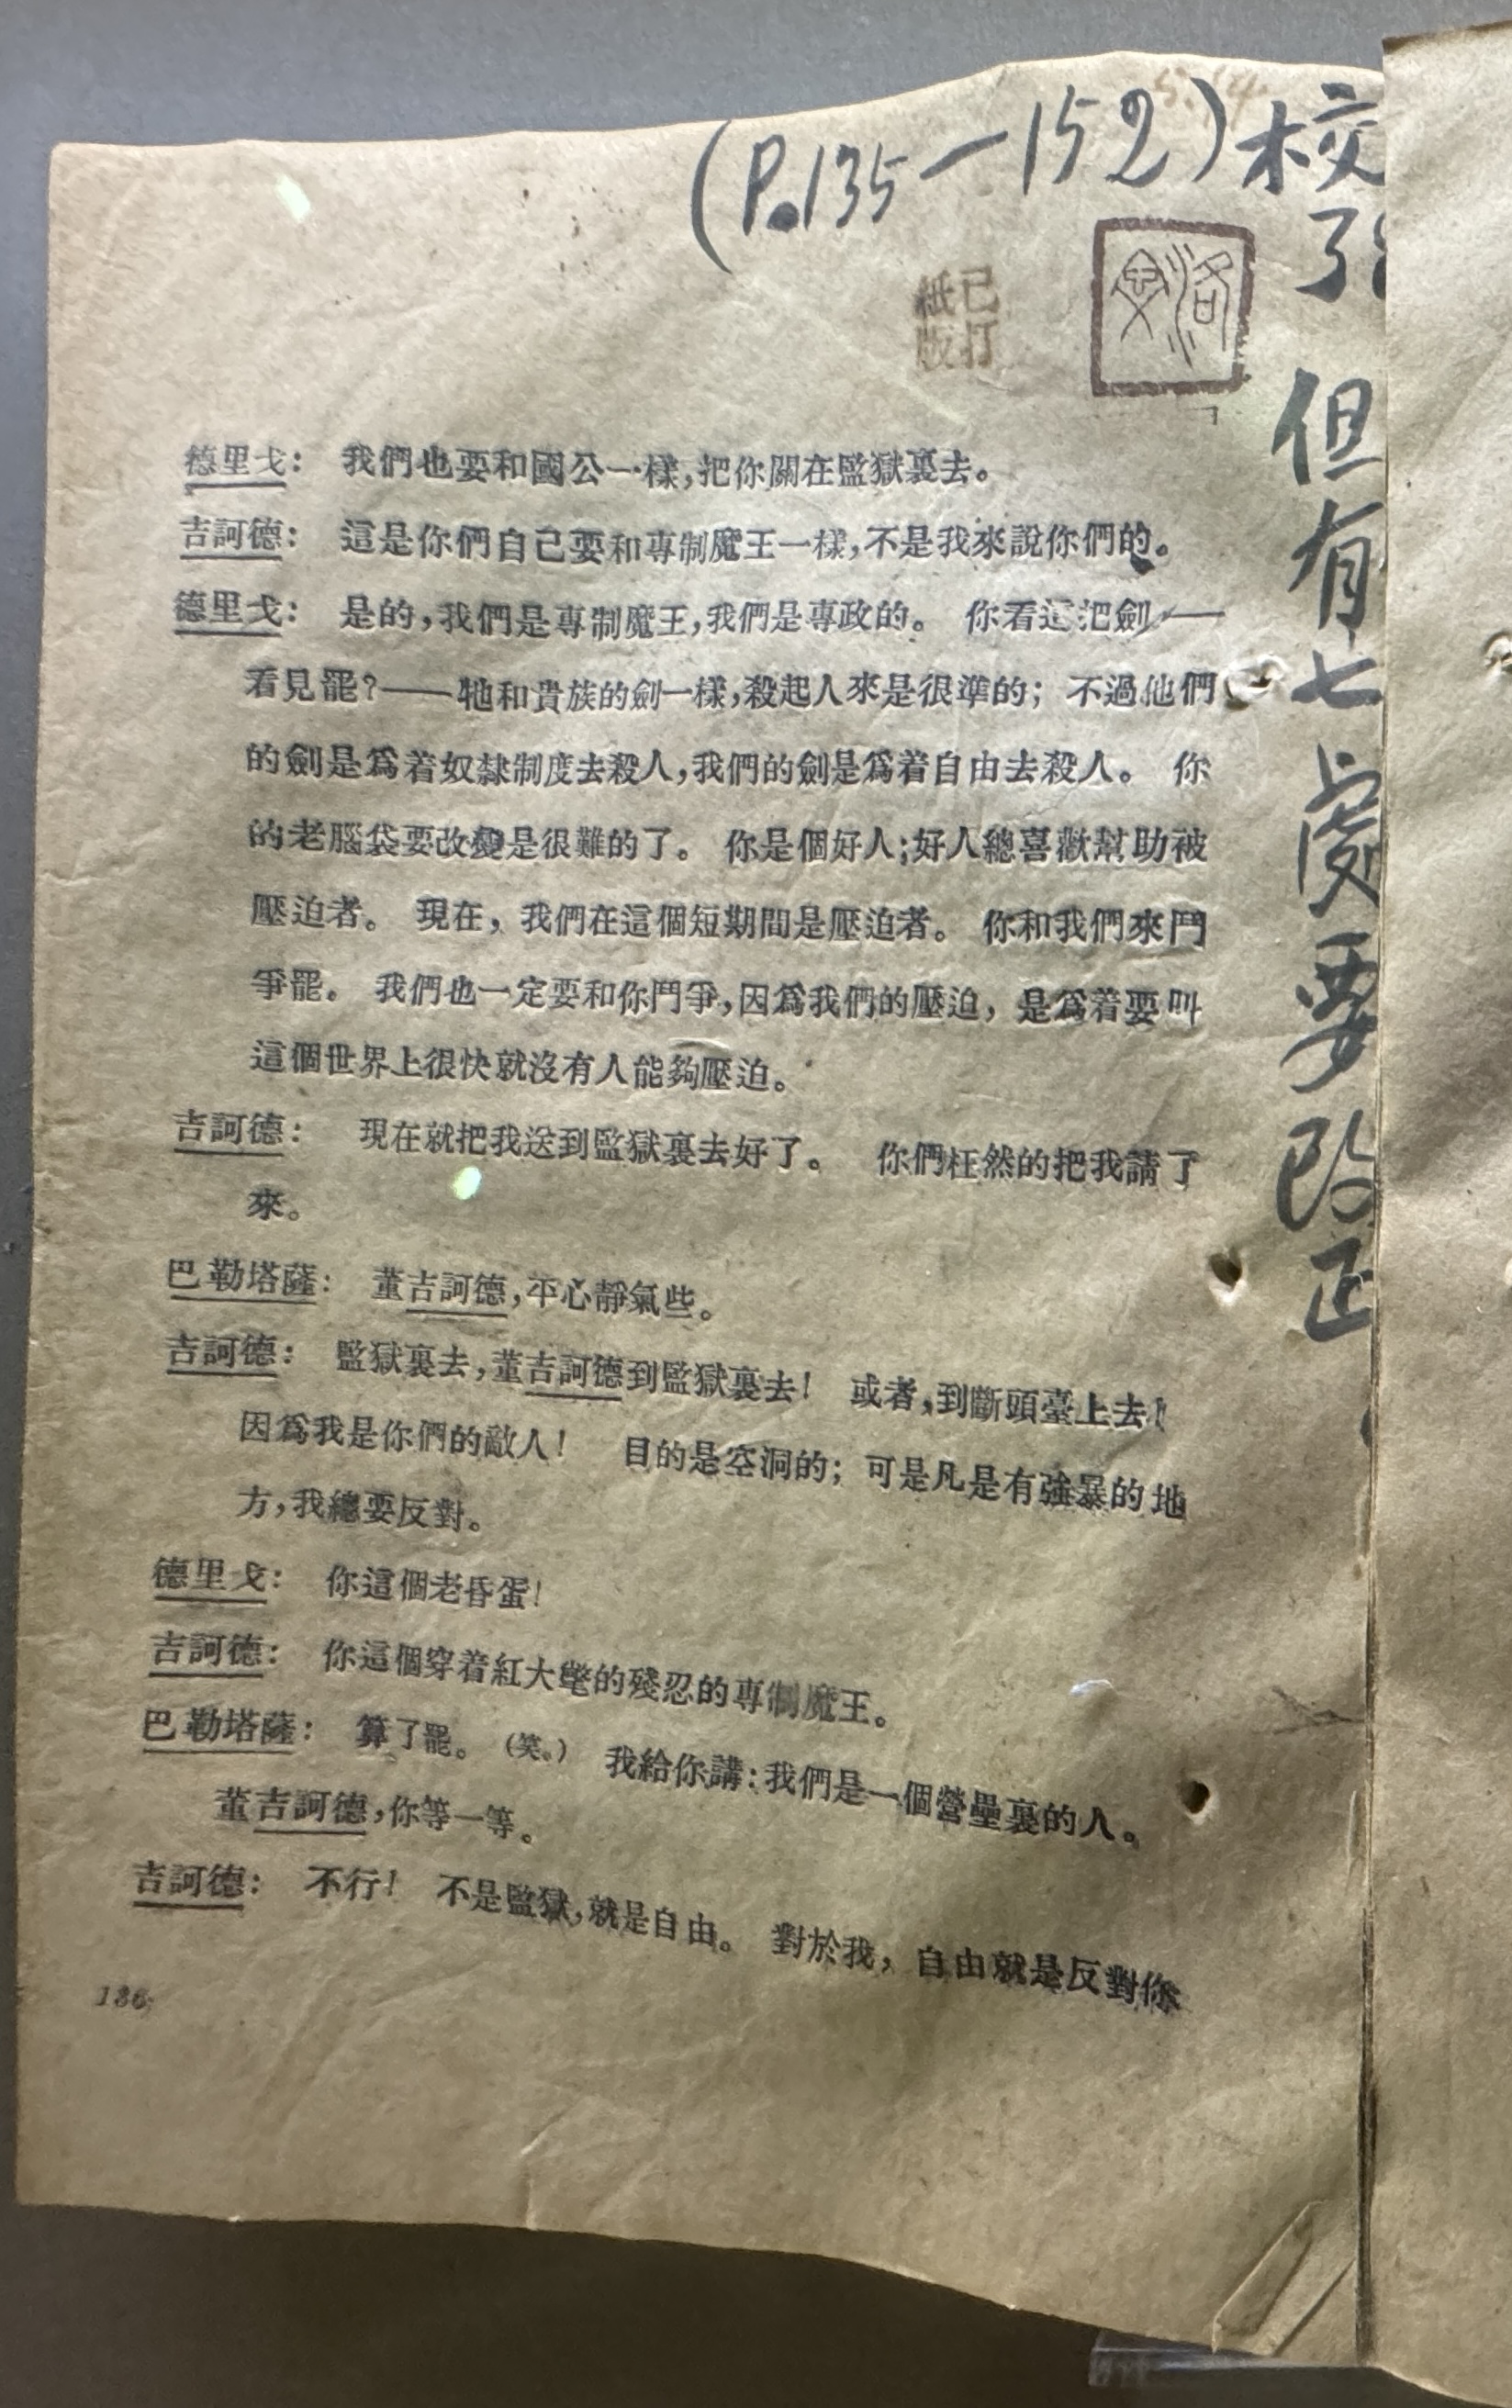 (P.135—152)校
了
但有七處要改正
已打
紙版
洛
德里戈: 我們也要和國公一樣,把你關在監獄裏去。
吉訶德: 這是你們自己要和專制魔王一樣,不是我來說你們的。
德里戈: 是的,我們是專制魔王,我們是專政的。 你看這把劍——
看見罷?——牠和貴族的劍一樣,殺起人來是很準的; 不過他們
的劍是爲着奴隸制度去殺人,我們的劍是爲着自由去殺人。 你
的老腦袋要改變是很難的了。 你是個好人;好人總喜歡幫助被
壓迫者。 現在, 我們在這個短期間是壓迫者。 你和我們來鬥
爭罷。 我們也一定要和你鬥爭,因爲我們的壓迫, 是爲着要叫
這個世界上很快就沒有人能夠壓迫。
吉訶德: 現在就把我送到監獄裏去好了。 你們枉然的把我請了
來。
巴勒塔薩: 董吉訶德,平心靜氣些。
吉訶德: 監獄裏去,董吉訶德到監獄裏去! 或者,到斷頭臺上去!
因爲我是你們的敵人! 目的是空洞的; 可是凡是有強暴的地
方,我總要反對。
德里戈: 你這個老昏蛋!
吉訶德: 你這個穿着紅大氅的殘忍的專制魔王。
巴勒塔薩: 算了罷。 (笑。) 我給你講:我們是一個營壘裏的人。
董吉訶德,你等一等。
吉訶德: 不行! 不是監獄,就是自由。 對於我, 自由就是反對你
136